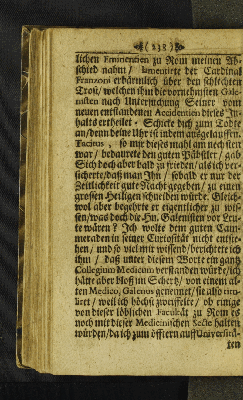 ( 238 )
lichen Eminentien zu Rom meinen Ab-
schied nahm / lamentirte der Cardinal
Franzoni erbärmlich über den schlechten
Trost / welchen ihm die vornehmsten Gale-
nisten nach Untersuchung Seiner vom
neuen entstandenen Accidentien dieses In-
halts ertheilet. Schicke dich zum Todte
an / denn deine Uhr ist indem ausgelauffen.
Tacitus, so mir dieses mahl am nechsten
war / bedaurete den guten Zähltler / gab
Sich doch aber bald zu frieden / als ich ver-
sicherte / daß man Ihn / sobald er nur der
Zeitlichkeit gute Nacht gegeben / zu einen
grossen Heiligen schreiben würde. Gleich-
wol aber begehrte er eigentlicher zu wis-
sen / was doch die Hn. Galenisten vor Leu-
te wären? Ich wolte dem guten Cam-
meraden in seiner Curiosität nicht entste-
hen / und so viel mir wissend / berichtete ich
ihm / daß unter diesem Worte ein gantz
Collegium Medicum verstanden würde / ich
hätte aber bloß im Schertz / von einem al-
ten Medico, Galenus genennet / sie also titu-
liret / weil ich höchst zweiffele / ob einige
von dieser löblichen Facultät zu Rom es
noch mit dieser Medicinischen Secte halten
würden / da ich zum öfftern auff Universitä-
ten